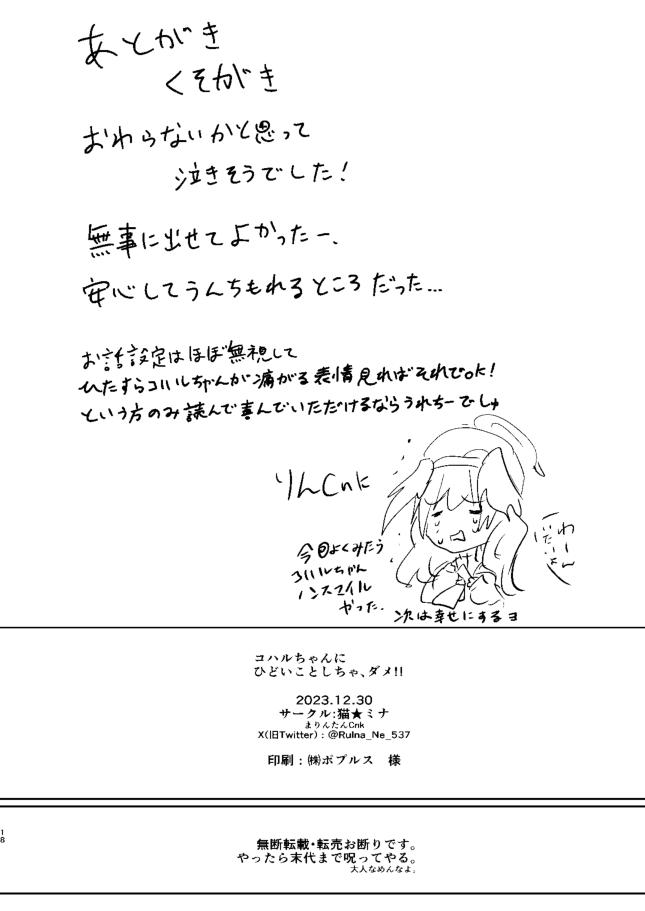 あとがき
くそがき
おわらないかと思って
泣きそうでした!
無事に出せてよかったー、
安心してうんちもれるところだった…
お話設定はほぼ無視して
ひたすらコハルちゃんが痛がる表情見ればそれでok!
という方のみ読んで喜んでいただけるならうれちーでしゅ
りんCnに
わーん
いたいよー
今回よくみたら
コハルちゃん
ノンスマイル
やった.
次は幸せにするヨ
コハルちゃんに
ひどいことしちゃ、ダメ!!
2023.12.30
サークル:猫★ミナ
まりんたんCnk
X(旧Twitter) : @RuIna_Ne_537
印刷 : ㈱ポプルス 様
18
無断転載・転売お断りです。
やったら末代まで呪ってやる。
大人なめんなよ。